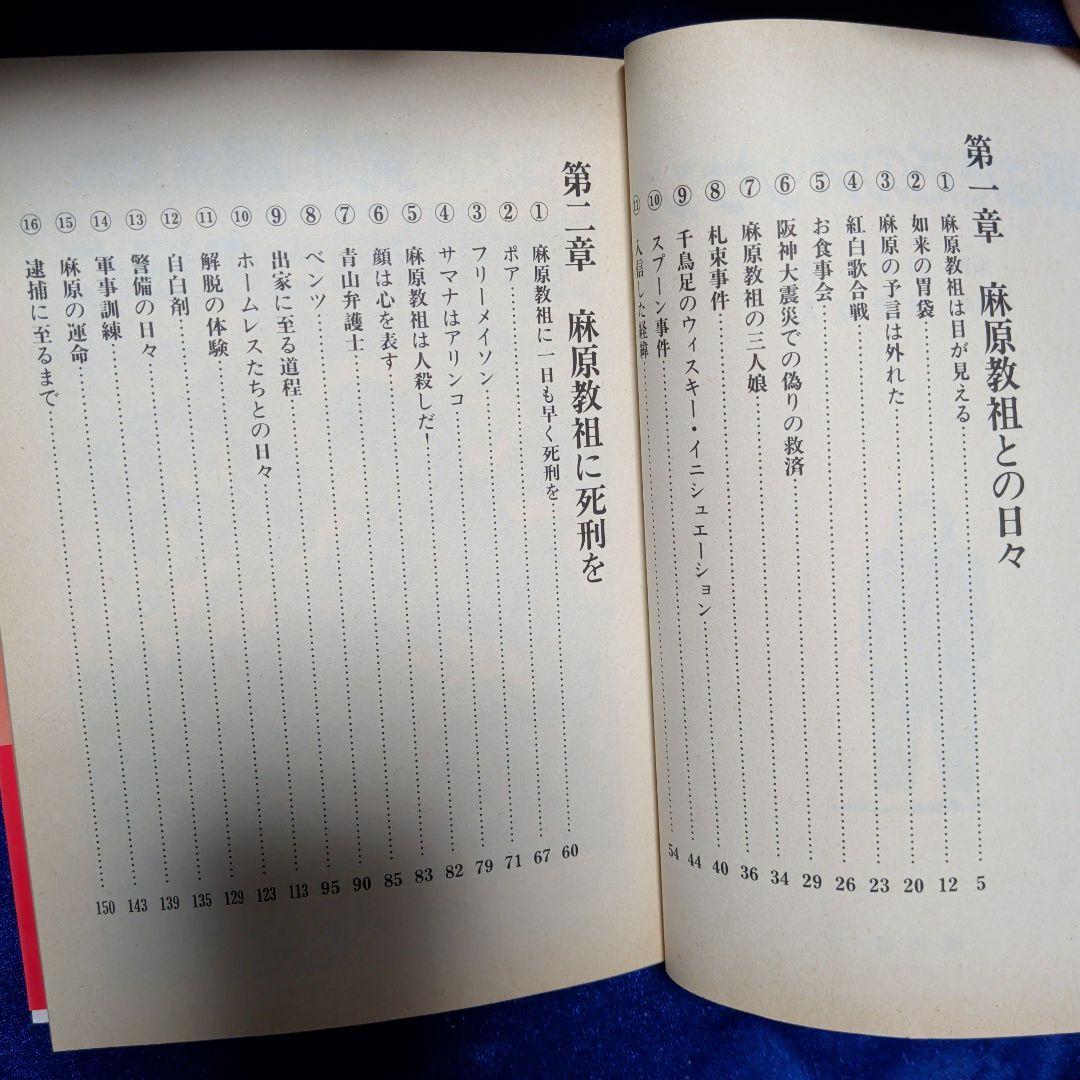 第一章　麻原教祖との日々
① 麻原教祖は目が見える 5
② 如来の胃袋 12
③ 麻原の予言は外れた 20
④ 紅白歌合戦 23
⑤ お食事会 26
⑥ 阪神大震災での偽りの救済 29
⑦ 麻原教祖の三人娘 34
⑧ 札束事件 36
⑨ 千鳥足のウィスキー・イニシュエーション 40
⑩ スプーン事件 44
⑪ 入信した経緯 54
第二章　麻原教祖に死刑を
① 麻原教祖に一日も早く死刑を 60
② ポア 67
③ フリーメイソン 71
④ サマナはアリンコ 79
⑤ 麻原教祖は人殺しだ！ 82
⑥ 顔は心を表す 83
⑦ 青山弁護士 85
⑧ ベンツ 90
⑨ 出家に至る道程 95
⑩ ホームレスたちとの日々 113
⑪ 解脱の体験 123
⑫ 自白剤 129
⑬ 警備の日々 135
⑭ 軍事訓練 139
⑮ 麻原の運命 143
⑯ 逮捕に至るまで 150